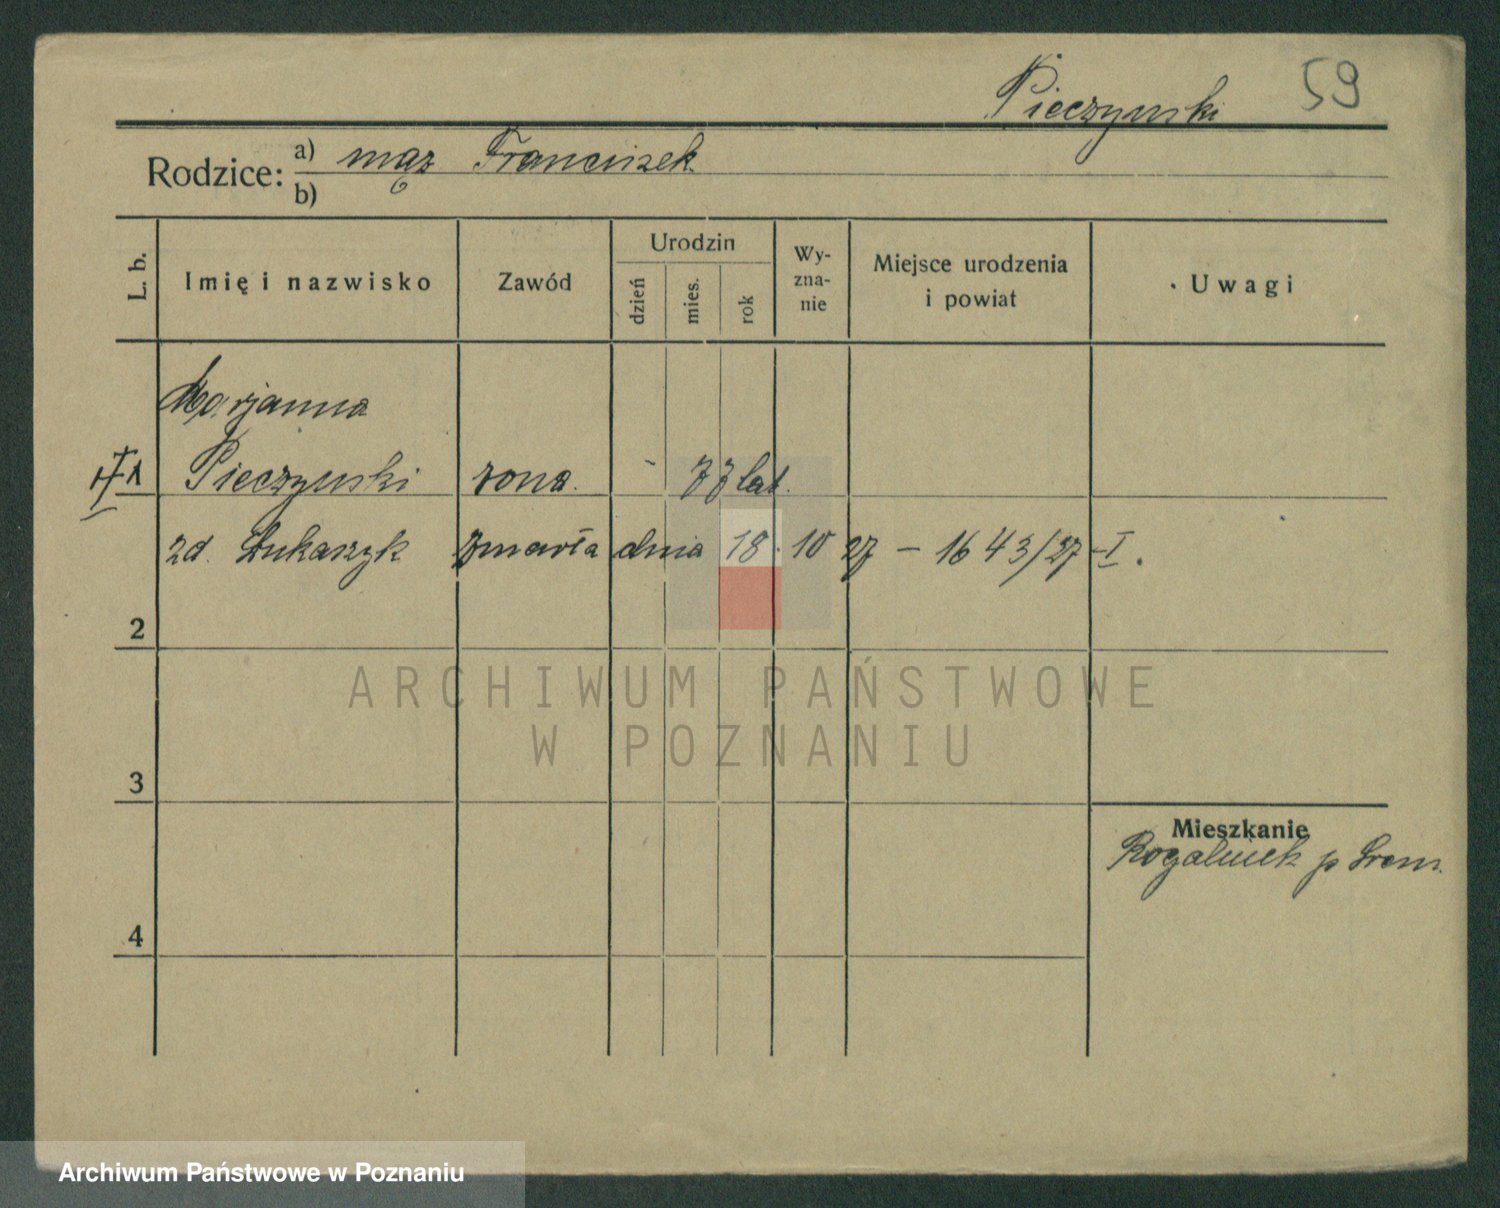 Pieczynski 59
Rodzice: a) mąż Franciszek
b)
L. b. Imię i nazwisko Zawód Urodzin dzień mies. rok Wyznanie Miejsce urodzenia i powiat Uwagi
Marjanna
1 Pieczynski żona. 77 lat.
zd. Łukaszyk zmarła dnia 18. 10 27 – 1643/27 – I.
2
ARCHIWUM PAŃSTWOWE
W POZNANIU
3
Mieszkanie
Rogalinek p Śrem.
4
Archiwum Państwowe w Poznaniu